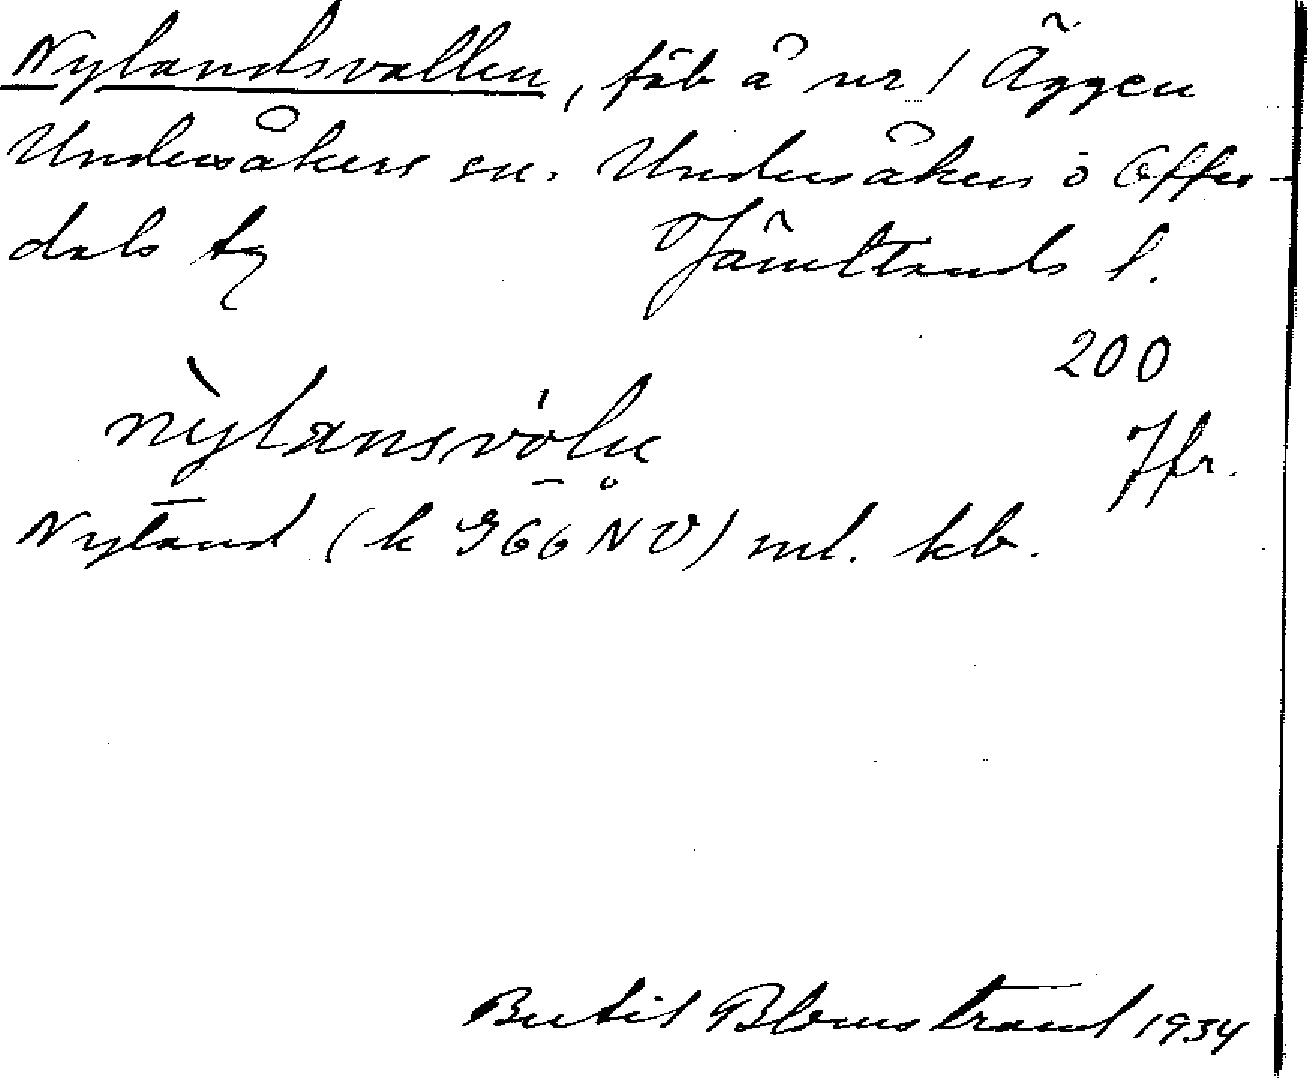 Nylandsvallen, fäb å nr 1 Äggen
Undersåkers sn. Undersåkers o Offer-
dals tg Jämtlands l.
200
nỳlansvólu Jfr.
Nyland (k 966 NV) ml. kb.
Bertil Blomstrand 1934